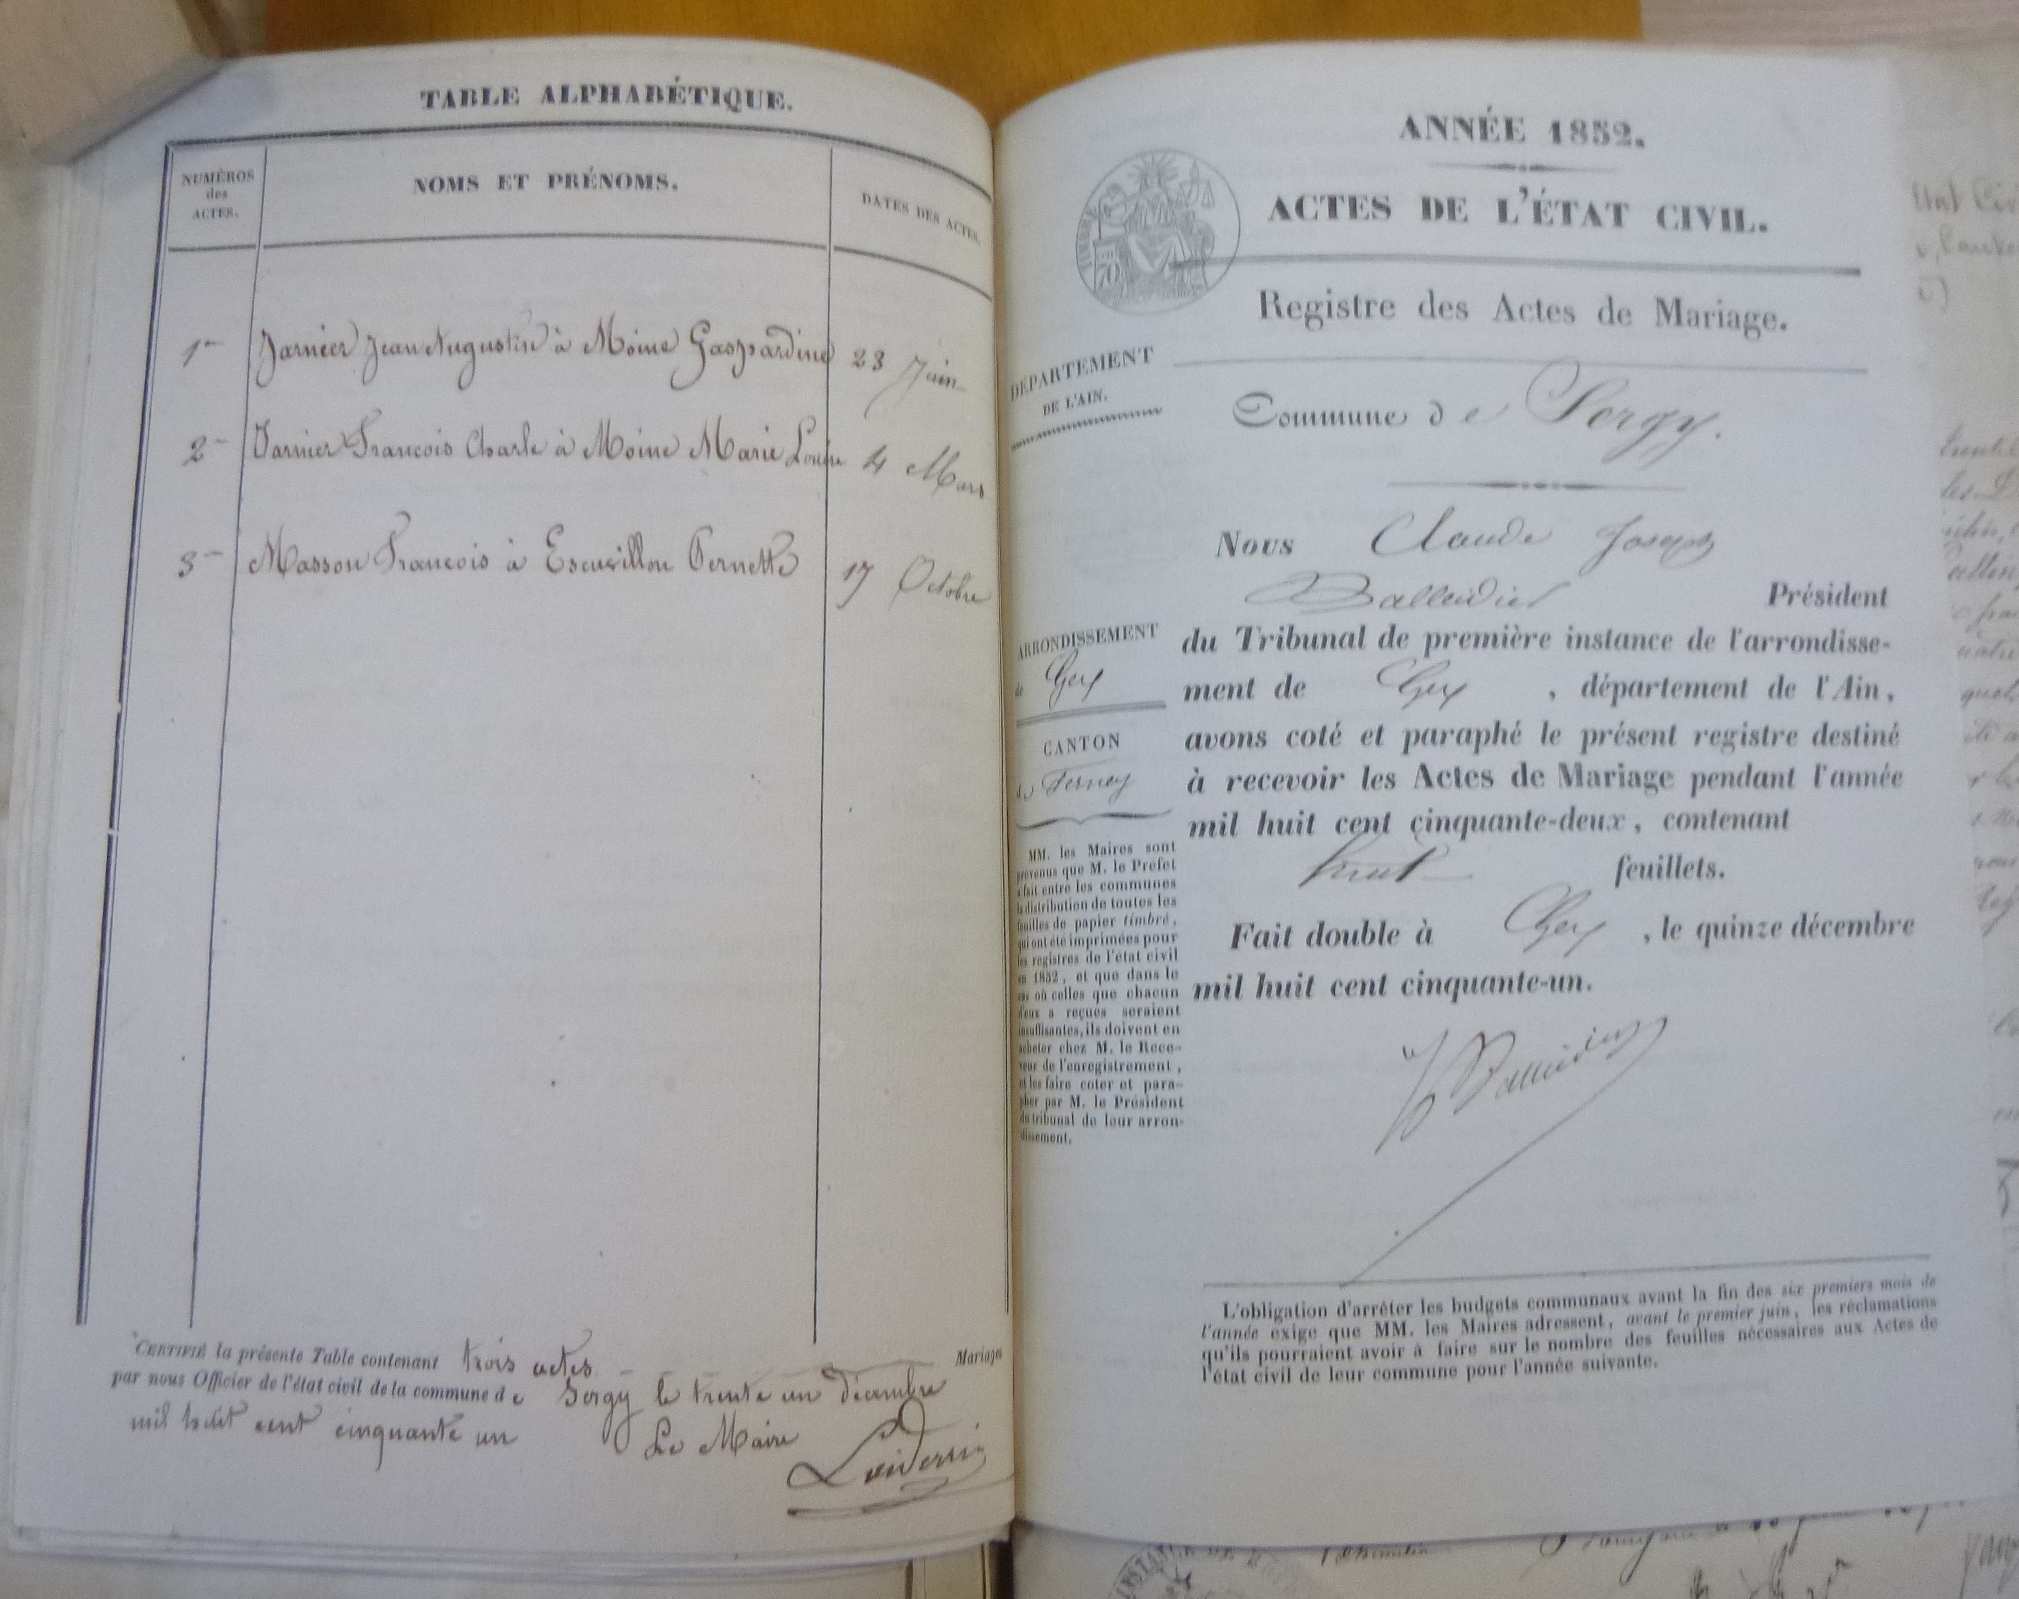 TABLE ALPHABÉTIQUE.
NUMÉROS
des
ACTES.
NOMS ET PRÉNOMS.
DATES DES ACTES.
1 Jarnier Jean Augustin à Moine Gaspardine 23 Juin
2 Jarnier Francois Charle à Moine Marie Louise 4 Mars
3 Masson Francois à Escuvillon Pernette 17 Octobre
CERTIFIÉ la présente Table contenant trois actes Mariages
par nous Officier de l'état civil de la commune de Sergy le trente un Décembre
mil huit cent cinquante un Le Maire
ANNÉE 1852.
ACTES DE L'ÉTAT CIVIL.
TIMBRE
70
Registre des Actes de Mariage.
DÉPARTEMENT
DE L'AIN.
Commune de Sergy.
Nous Claude Joseph
Balleidier Président
du Tribunal de première instance de l'arrondisse-
ment de Gex, département de l'Ain,
avons coté et paraphé le présent registre destiné
à recevoir les Actes de Mariage pendant l'année
mil huit cent cinquante-deux, contenant
huit feuillets.
Fait double à Gex, le quinze décembre
mil huit cent cinquante-un.
ARRONDISSEMENT
de Gex
CANTON
de Ferney
MM. les Maires sont
prévenus que M. le Préfet
a fait entre les communes
la distribution de toutes les
feuilles de papier timbré,
qui ont été imprimées pour
les registres de l'état civil
en 1852, et que dans le
cas où celles que chacun
d'eux a reçues seraient
insuffisantes, ils doivent en
acheter chez M. le Rece-
veur de l'enregistrement,
et les faire coter et para-
pher par M. le Président
du tribunal de leur arron-
dissement.
L'obligation d'arrêter les budgets communaux avant la fin des six premiers mois de
l'année exige que MM. les Maires adressent, avant le premier juin, les réclamations
qu'ils pourraient avoir à faire sur le nombre des feuilles nécessaires aux Actes de
l'état civil de leur commune pour l'année suivante.